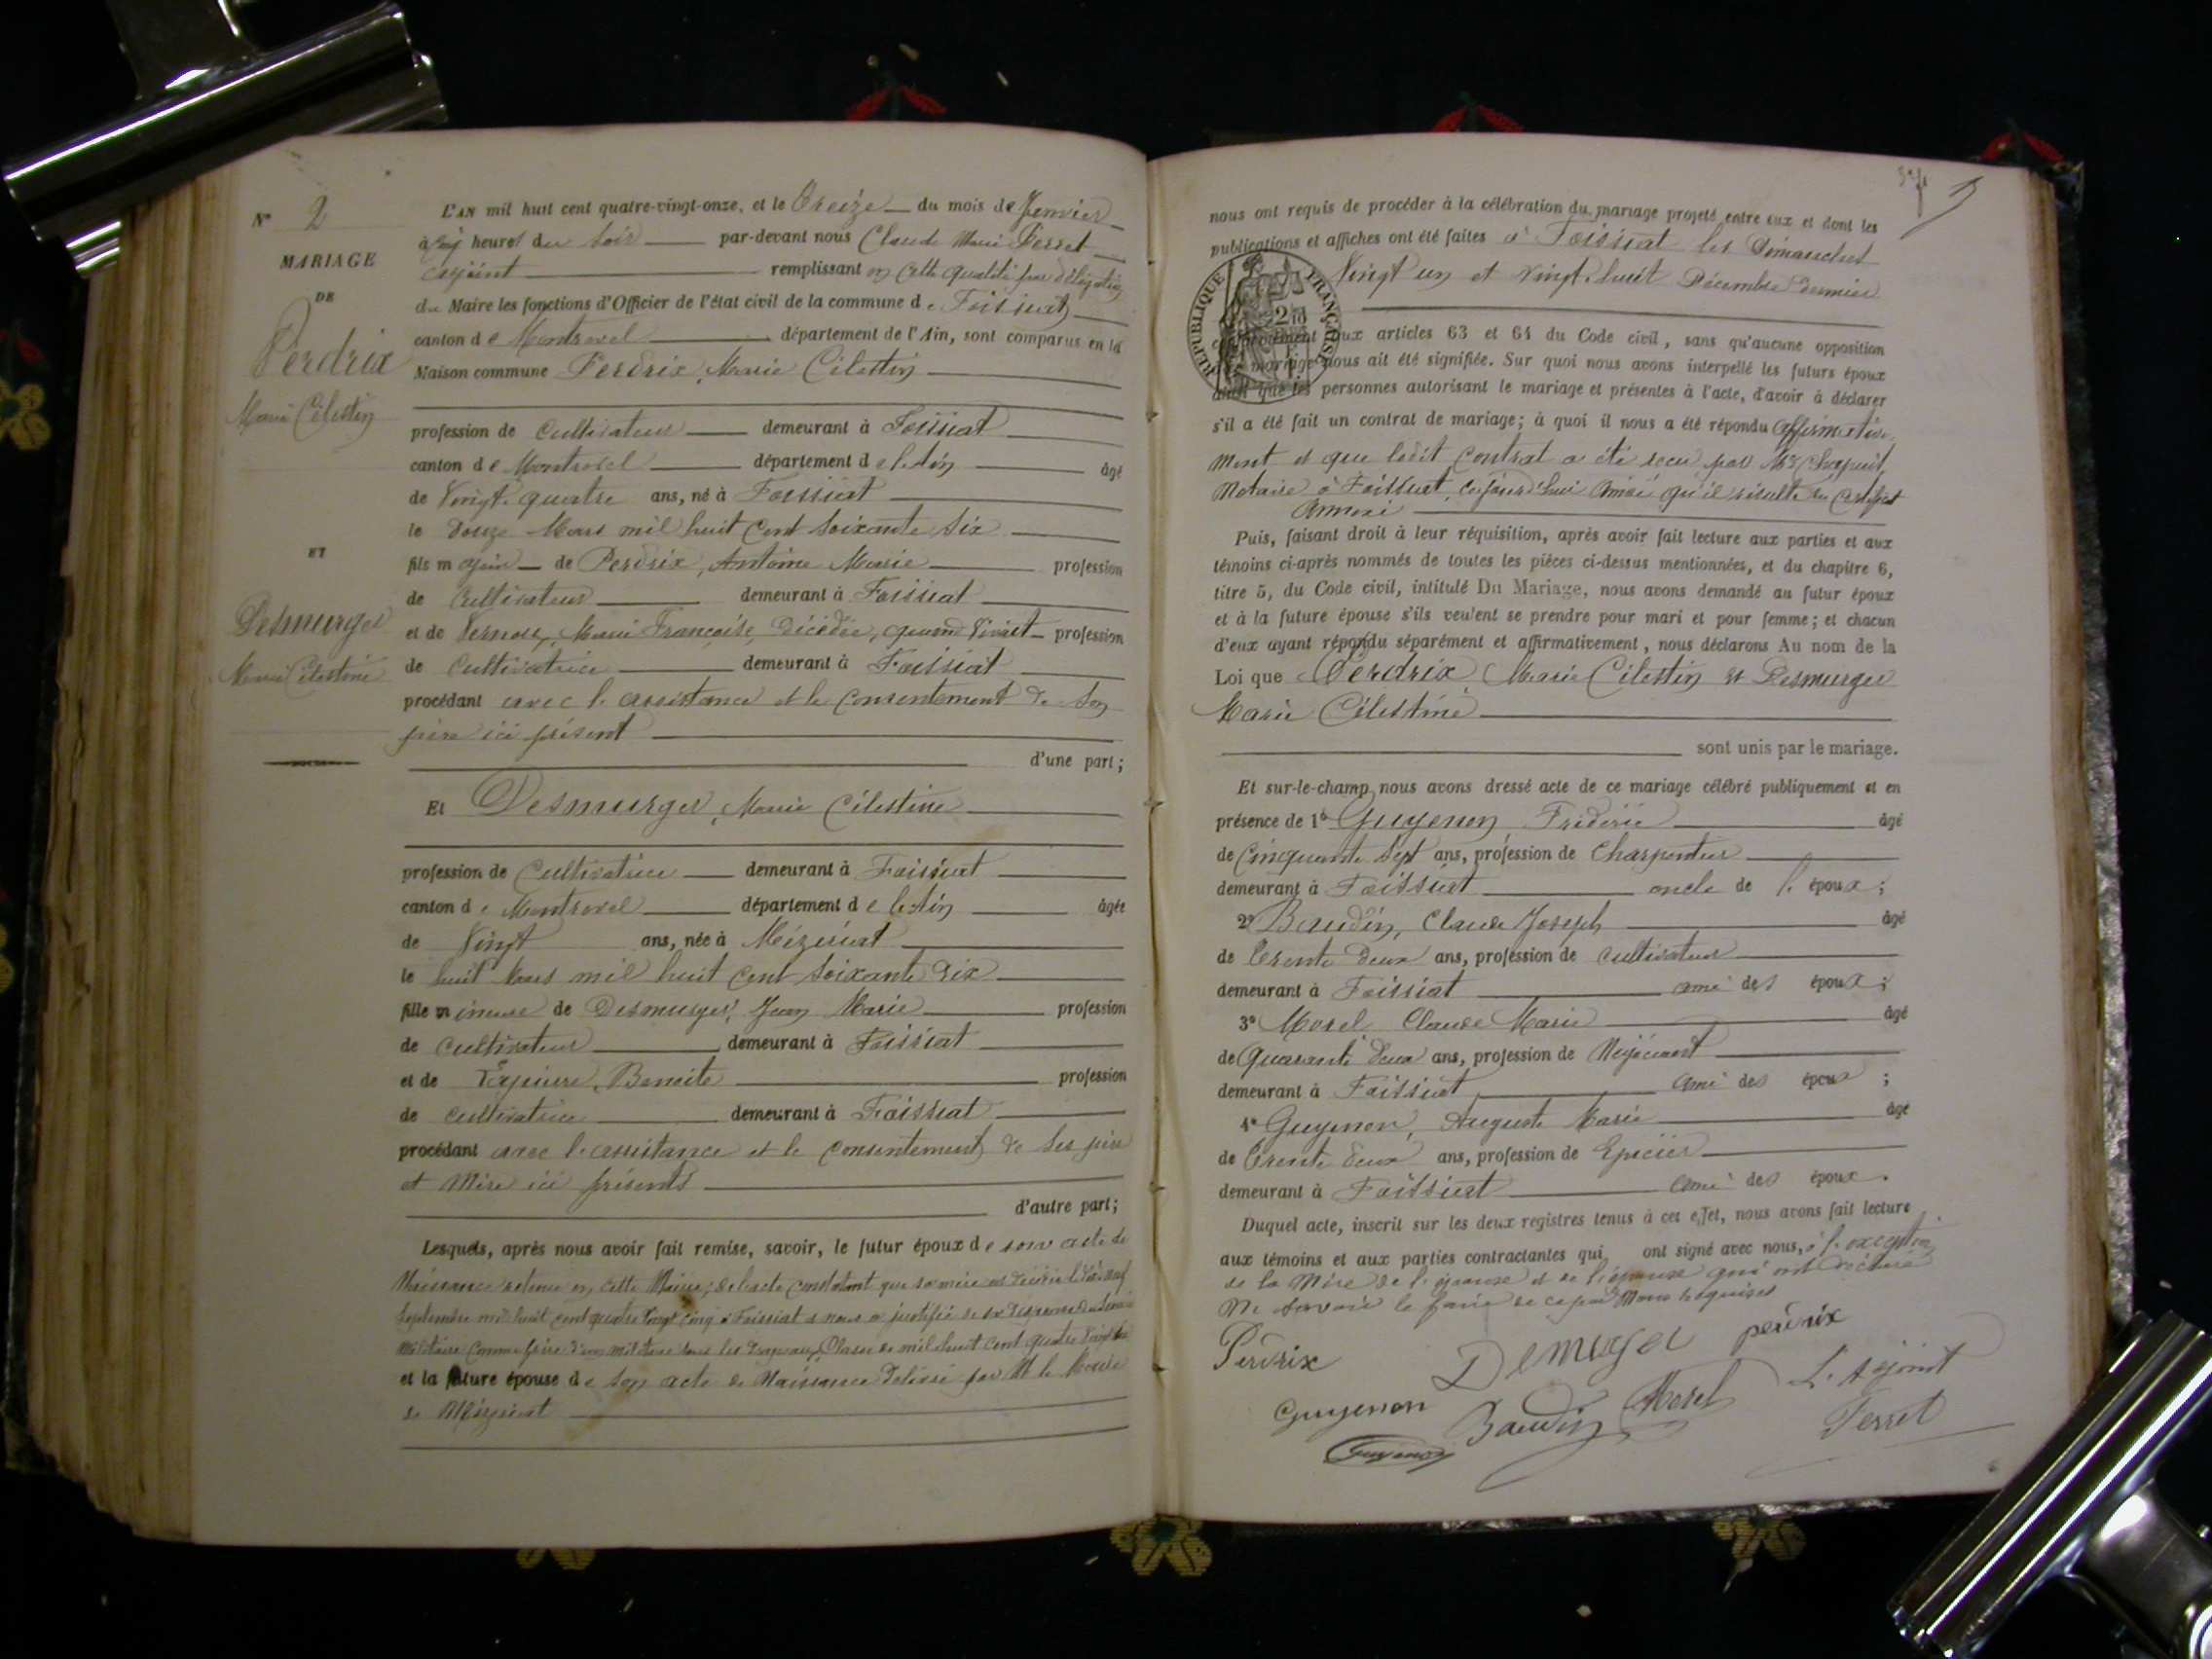 N° 2
MARIAGE
DE
Perdrix
Marie Célestin
ET
Desmurger
Marie Célestine
L'AN mil huit cent quatre-vingt-onze, et le Treize du mois de Janvier
à heures du Soir par-devant nous Claude Marie Perret
adjoint remplissant en cette qualité par délégation
du Maire les fonctions d'Officier de l'état civil de la commune de Foissiat
canton de Montrevel département de l'Ain, sont comparus en la
Maison commune Perdrix, Marie Célestin
profession de Cultivateur demeurant à Foissiat
canton de Montrevel département de l'Ain âgé
de Vingt quatre ans, né à Foissiat
le Douze Mars mil huit cent soixante six
fils majeur de Perdrix, Antoine Marie profession
de Cultivateur demeurant à Foissiat
et de Marie Françoise, décédée, quand vivait profession
de Cultivatrice demeurant à Foissiat
procédant avec l'assistance et le consentement de son
père ici présent
d'une part;
Et Desmurger, Marie Célestine
profession de Cultivatrice demeurant à Foissiat
canton de Montrevel département de l'Ain âgée
de Vingt ans, née à Mézériat
le huit Mars mil huit cent soixante dix
fille mineure de Desmurger, Jean Marie profession
de Cultivateur demeurant à Foissiat
et de Benoite profession
de cultivatrice demeurant à Foissiat
procédant avec l'assistance et le consentement de ses père
et mère ici présents
d'autre part;
Lesquels, après nous avoir fait remise, savoir, le futur époux de son acte de
Naissance retenu en cette Mairie; de l'acte constatant que sa mère est décédée le
Septembre mil huit cent quatre vingt cinq à Foissiat et nous a justifié de sa
militaire comme frère d'un militaire sous les drapeaux, Classe de mil huit cent quatre vingt
et la future épouse de son acte de Naissance délivré par M. le Maire
de Mézériat
5
nous ont requis de procéder à la célébration du mariage projeté entre eux et dont les
publications et affiches ont été faites à Foissiat les Dimanches
Vingt un et vingt huit Décembre Dernier
RÉPUBLIQUE FRANÇAISE
conformément aux articles 63 et 64 du Code civil, sans qu'aucune opposition
mariage nous ait été signifiée. Sur quoi nous avons interpellé les futurs époux
ainsi que les personnes autorisant le mariage et présentes à l'acte, d'avoir à déclarer
s'il a été fait un contrat de mariage; à quoi il nous a été répondu affirmative-
ment et que ledit contrat a été reçu par Me Chapuis,
Notaire à Foissiat, ce jourd'hui ainsi qu'il résulte du certificat
annexé
Puis, faisant droit à leur réquisition, après avoir fait lecture aux parties et aux
témoins ci-après nommés de toutes les pièces ci-dessus mentionnées, et du chapitre 6,
titre 5, du Code civil, intitulé Du Mariage, nous avons demandé au futur époux
et à la future épouse s'ils veulent se prendre pour mari et pour femme; et chacun
d'eux ayant répondu séparément et affirmativement, nous déclarons Au nom de la
Loi que Perdrix Marie Célestin et Desmurger
Marie Célestine
sont unis par le mariage.
Et sur-le-champ, nous avons dressé acte de ce mariage célébré publiquement et en
présence de 1° Guyenon, Fréderic âgé
de Cinquante sept ans, profession de Charpentier
demeurant à Foissiat oncle de l'époux;
2° Baudin, Claude Joseph âgé
de Trente deux ans, profession de cultivateur
demeurant à Foissiat ami des époux;
3° Morel Claude Marie âgé
de Quarante deux ans, profession de Négociant
demeurant à Foissiat ami des époux;
4° Guyenon, Auguste Marie âgé
de Trente deux ans, profession de Epicier
demeurant à Foissiat ami des époux.
Duquel acte, inscrit sur les deux registres tenus à cet effet, nous avons fait lecture
aux témoins et aux parties contractantes qui ont signé avec nous, à l'exception
de la Mère de l'épouse et de l'épouse qui ont déclaré
ne savoir le faire de ce par nous requises
Perdrix Demurger perdrix
Guyenon Baudin Morel L'Adjoint
Guyenon Perret